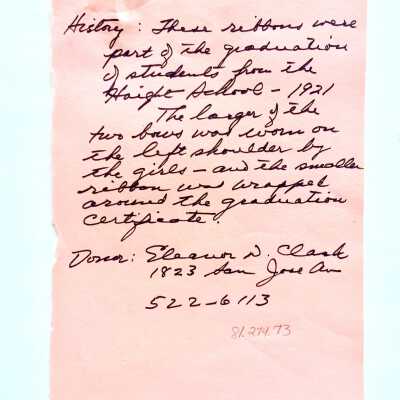 History: These ribbons were
part of the graduation
of students from the
Haight School - 1921
The larger of the
two bows was worn on
the left shoulder by
the girls - and the smaller
ribbon was wrapped
around the graduation
certificate.
Donor: Eleanor D. Clark
1823 San Jose Av
522-6113
81.274.73